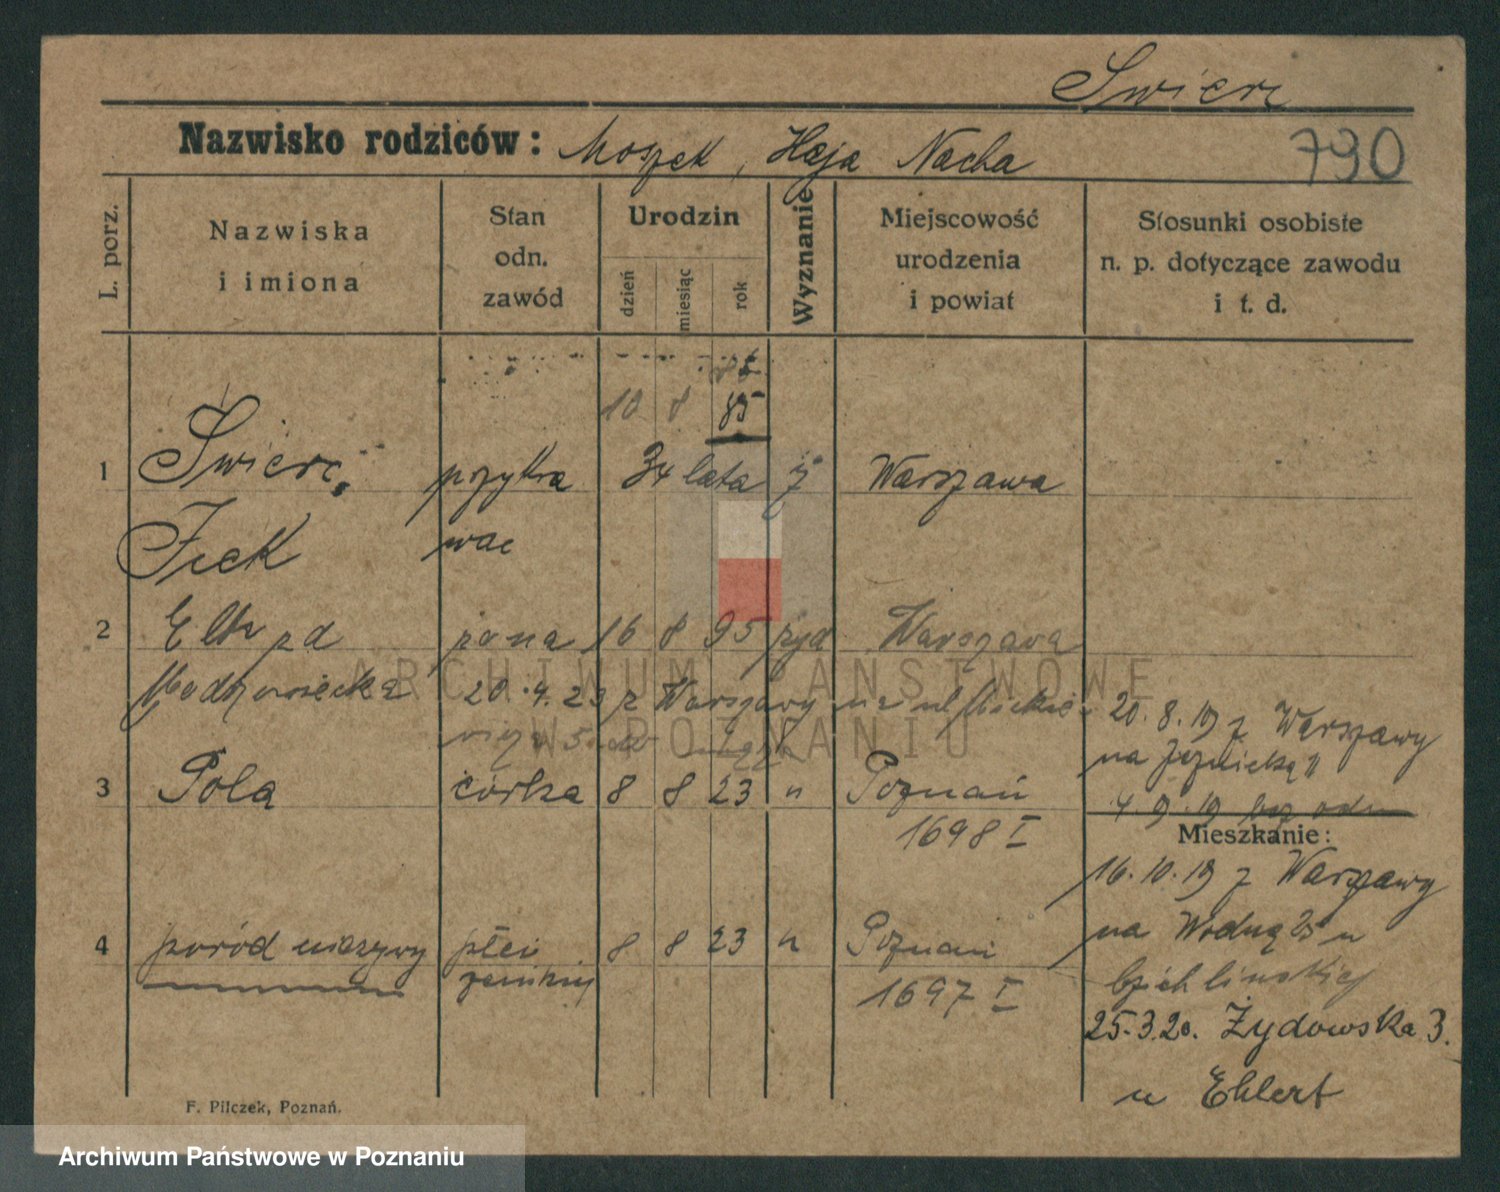 Świerc
Nazwisko rodziców: Moszek, Haja Nacha
790
L. porz.
Nazwiska
i imiona
Stan
odn.
zawód
Urodzin
dzień
miesiąc
rok
Wyznanie
Miejscowość
urodzenia
i powiat
Stosunki osobiste
n. p. dotyczące zawodu
i t. d.
10 8 85
1 Świerc, 34 lata ż Warszawa
Icek
2 żona 16 8 95 żyd Warszawa
20.4.23 z Warszawy
20.8.19 z Warszawy
na
3 Pola córka 8 8 23 " Poznań
4.9.19
1698 I
Mieszkanie:
16.10.19 z Warszawy
na Wodną 25 u
4 poród nieżywy płci 8 8 23 " Poznań
1697 I
25.3.20. Żydowska 3.
u Ehlert
F. Pilczek, Poznań.
ARCHIWUM PAŃSTWOWE
W POZNANIU
Archiwum Państwowe w Poznaniu